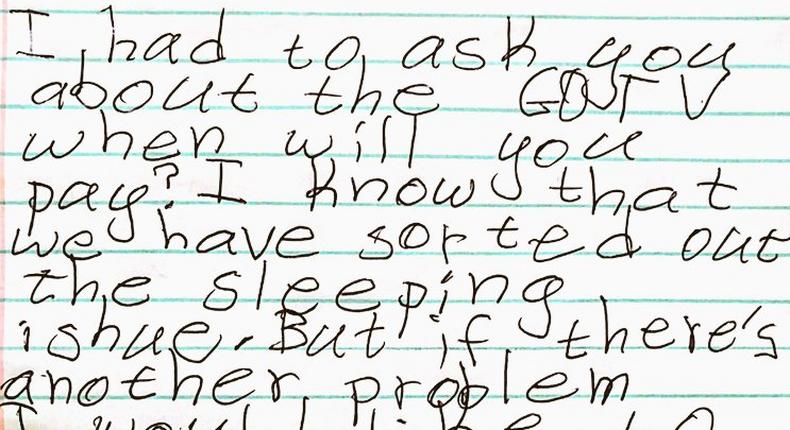 I had to ask you
about the
when will you
pay? I know that
we have sorted out
the sleeping
ishue. But if there's
another problem
I would like to